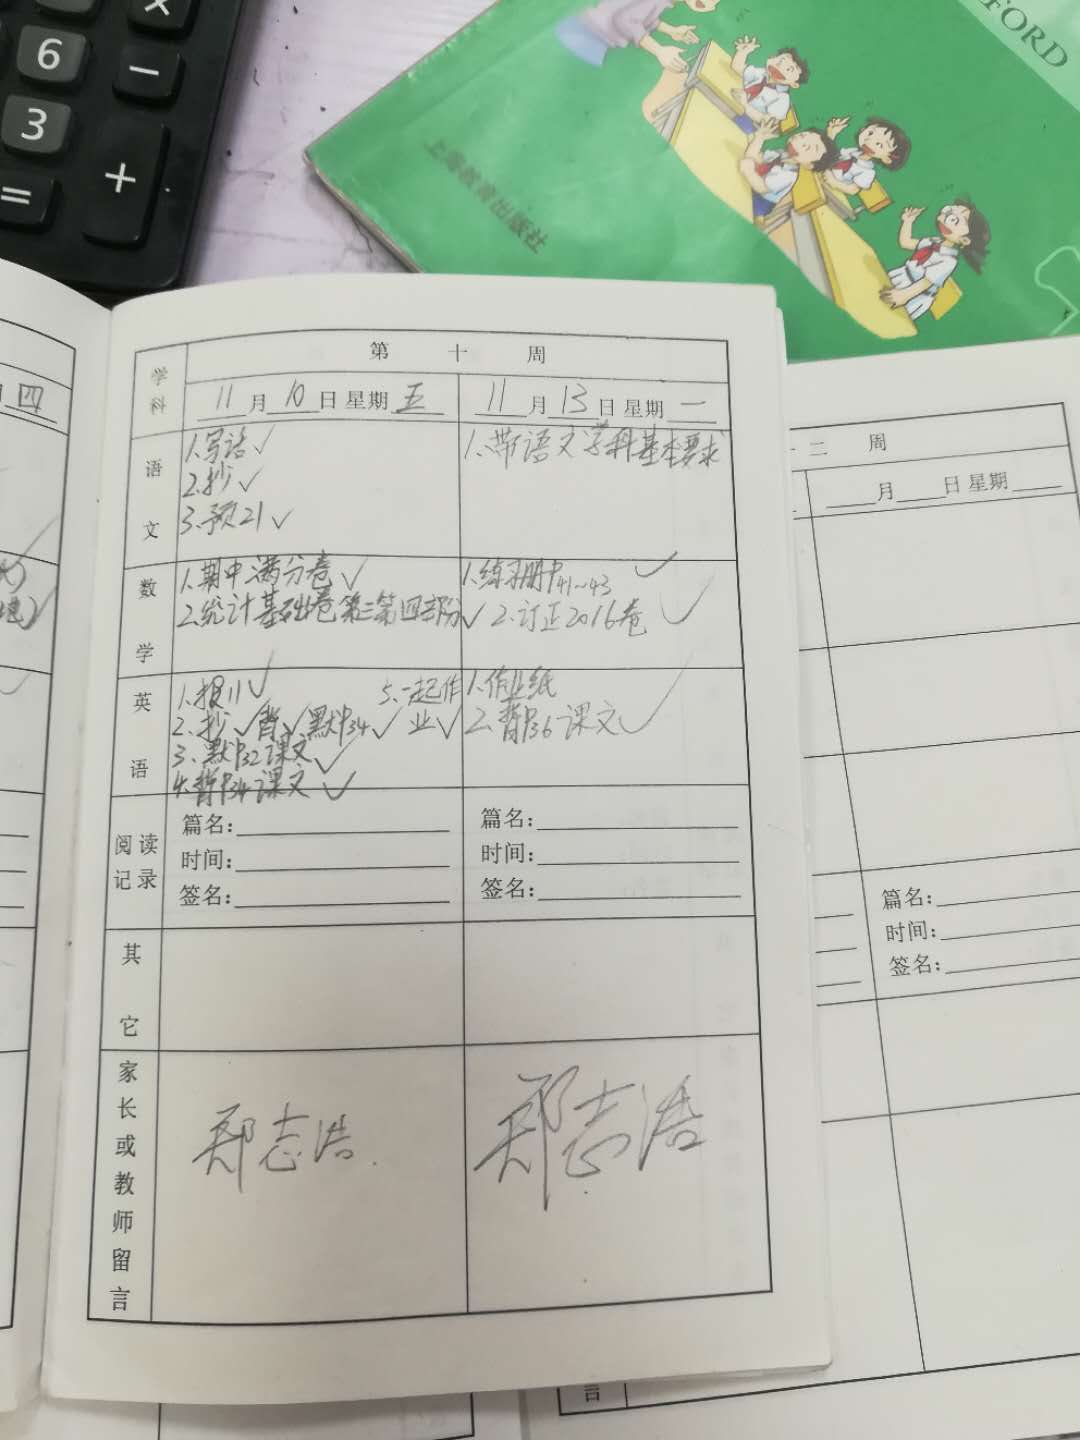 ×
6
−
3
+
=
FORD
上海教育出版社
四
学科
第 十 周
11月10日 星期五
11月13日 星期一
语文
1.写话✓
2.抄✓
3.预21✓
1.带语文学科基本要求
数学
1.期中满分卷✓
2.统计基础卷第三第四部分✓
1.练习册P41~43 ✓
2.订正2016卷✓
英语
1.报11✓
2.抄✓背✓默P34✓
3.默P32课文✓
4.背P34课文✓
5.一起作业✓
1.作业纸
2.背P36课文✓
阅读记录
篇名:
时间:
签名:
篇名:
时间:
签名:
其它
家长或教师留言
郑志浩
郑志浩
二 周
月 日 星期
篇名:
时间:
签名:
言